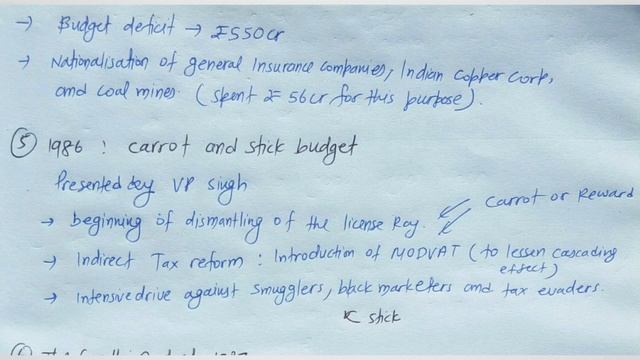 → Budget deficit → ₹550cr
→ Nationalisation of general Insurance companies, Indian Copper Corp,
and coal mines. (spent ₹ 56cr for this purpose).
⑤ 1986 : carrot and stick budget
Presented by VP Singh
→ beginning of dismantling of the license Raj.
carrot or Reward
→ Indirect Tax reform : Introduction of MODVAT (to lessen cascading
effect)
→ Intensive drive against smugglers, black marketers and tax evaders.
↖ stick